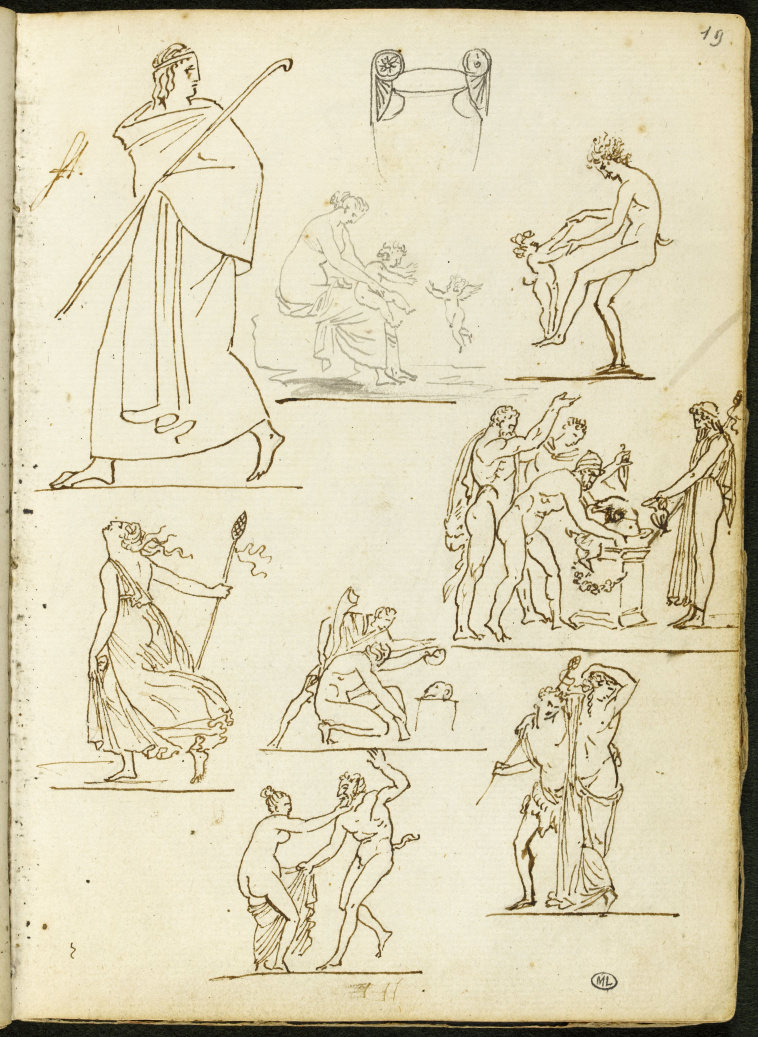 19
ML